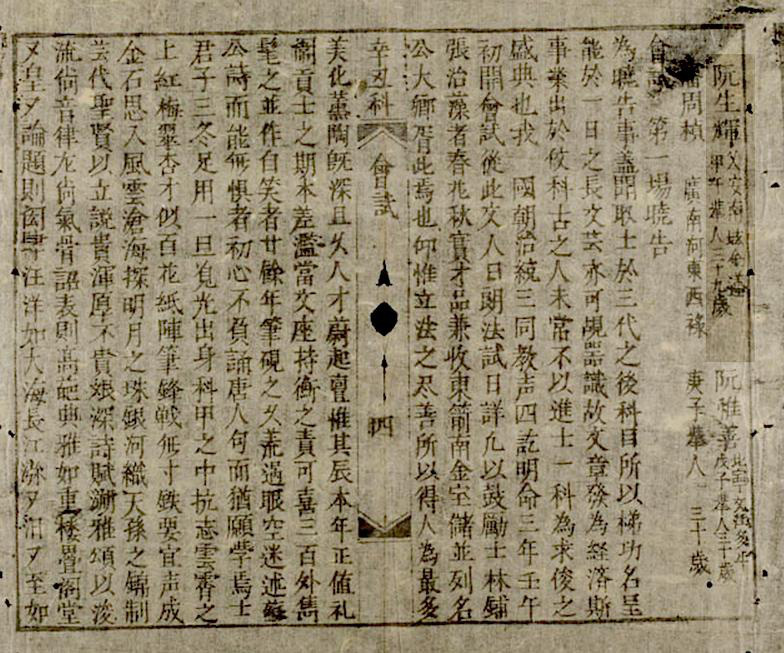 阮生輝 乂安南 甲午舉人二十九歲 阮惟善 北寧文江多牛 戊子舉人三十歲
潘周楨 廣南河東西祿 庚子舉人 三十歲
會試 第一場曉告
為曉告事蓋聞取士於三代之後科目所以梯功名呈
能於一日之長文芸亦可覘器識故文章發為經濟斯
事業出於仗科古之人未常不以進士一科為求俊之
盛典也我 國朝治統三同教声四訖明命三年壬午
初開會試從此文人日朗法試日詳凢以鼓勵士林鋪
張治藻者春花秋實才品兼收東箭南金宝儲並列名
公大卿胥此焉也仰惟立法之尽善所以得人為最多
辛丑科 會試 四
美化薰陶旣深且久人才蔚起亶惟其辰本年正值礼
闈貢士之期本差濫當文座持衡之責可喜三百外雋
髦之並作自笑者廿餘年筆硯之久荒過眼空迷述蘇
公詩而能無惧者初心不負誦唐人句而猶願學焉士
君子三冬足用一旦覔光出身科甲之中抗志雲霄之
上紅梅翠杏才似百花紙陣筆鋒戰無寸鉄要宜声成
金石思入風雲滄海探明月之珠銀河織天孫之錦制
芸代聖賢以立說貴渾厚不貴艱深詩賦溯雅頌以浚
流尙音律尤尙氣骨詔表則高葩典雅如重楼疊閣堂
〻皇〻論題則閎汪洋如大海長江弥〻汨〻至如